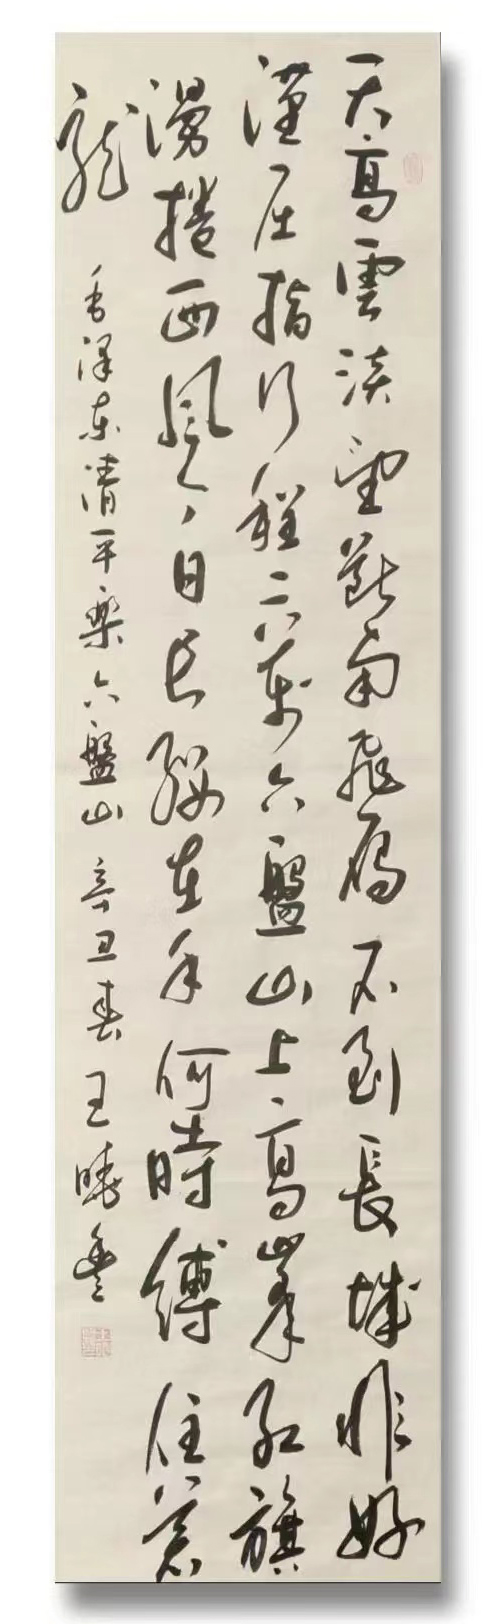 天高雲淡望斷南飛雁不到長城非好
漢屈指行程二萬六盤山上高峯紅旗
漫捲西風今日長纓在手何時縛住蒼
龍
毛澤東清平樂六盤山 辛丑春 王曉